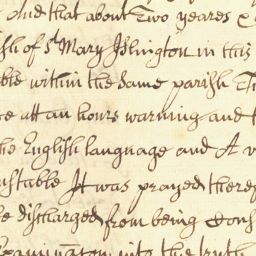 And that about Two yeares
sh of St Mary Islington in this
ble within the same parish
ce att an hours warning and
he English language and A
nstable It was prayed there
e discharged from being Cons
Examinacon into the truth